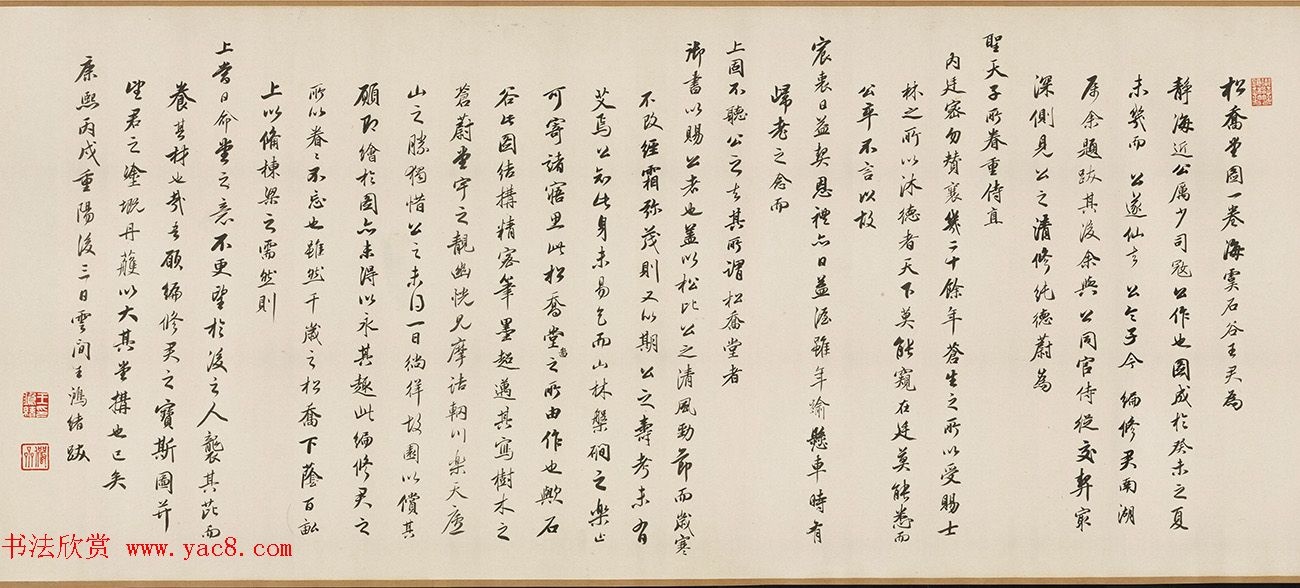 松喬堂圖一卷海虞石谷王君為
靜海近公厲少司寇公作也圖成於癸未之夏
未幾而公遂仙去公令子今編修君南湖
屬余題跋其後余與公同官侍從交契最
深側見公之清修純德蔚為
聖天子所眷重侍直
內廷密勿贊襄幾二十餘年蒼生之所以受賜士
林之所以沐德者天下莫能窺在廷莫能悉而
公卒不言以故
宸衷日益契恩禮亦日益渥雖年踰懸車時有
歸老之念而
上固不聽公之去其所謂松喬堂者
御書以賜公者也蓋以松比公之清風勁節而歲寒
不改經霜弥茂則又以期公之壽考未有
艾焉公知此身未易乞而山林槃磵之樂止
可寄諸寤思此松喬堂圖之所由作也歟石
谷此圖結搆精密筆墨超邁其寫樹木之
蒼蔚堂宇之靚幽恍見摩詰輞川樂天廬
山之勝獨惜公之未得一日徜徉故園以償其
願即繪於圖亦未得以永其趣此編修君之
所以眷〻不忘也雖然千歲之松喬下蔭百畝
上以備棟梁之需然則
上當日命堂之意不更望於後之人襲其芘而
養其材也哉吾願編修君之寶斯圖并
望君之塗墍丹雘以大其堂搆也已矣
康熙丙戌重陽後三日雲間王鴻緒跋
书法欣赏 www.yac8.com